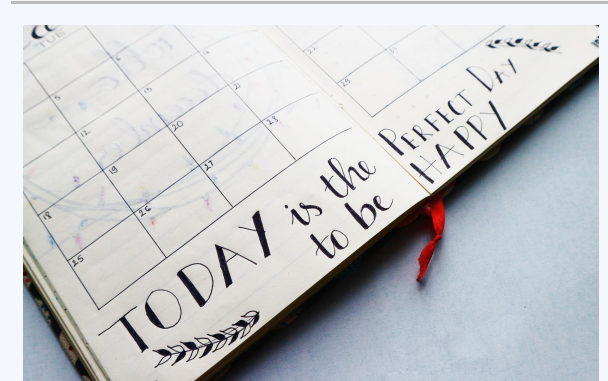 TUE
5 6
12 13 14
18 19 20 21
25 26 27 28
22
29
TODAY is the PERFECT DAY
to be HAPPY